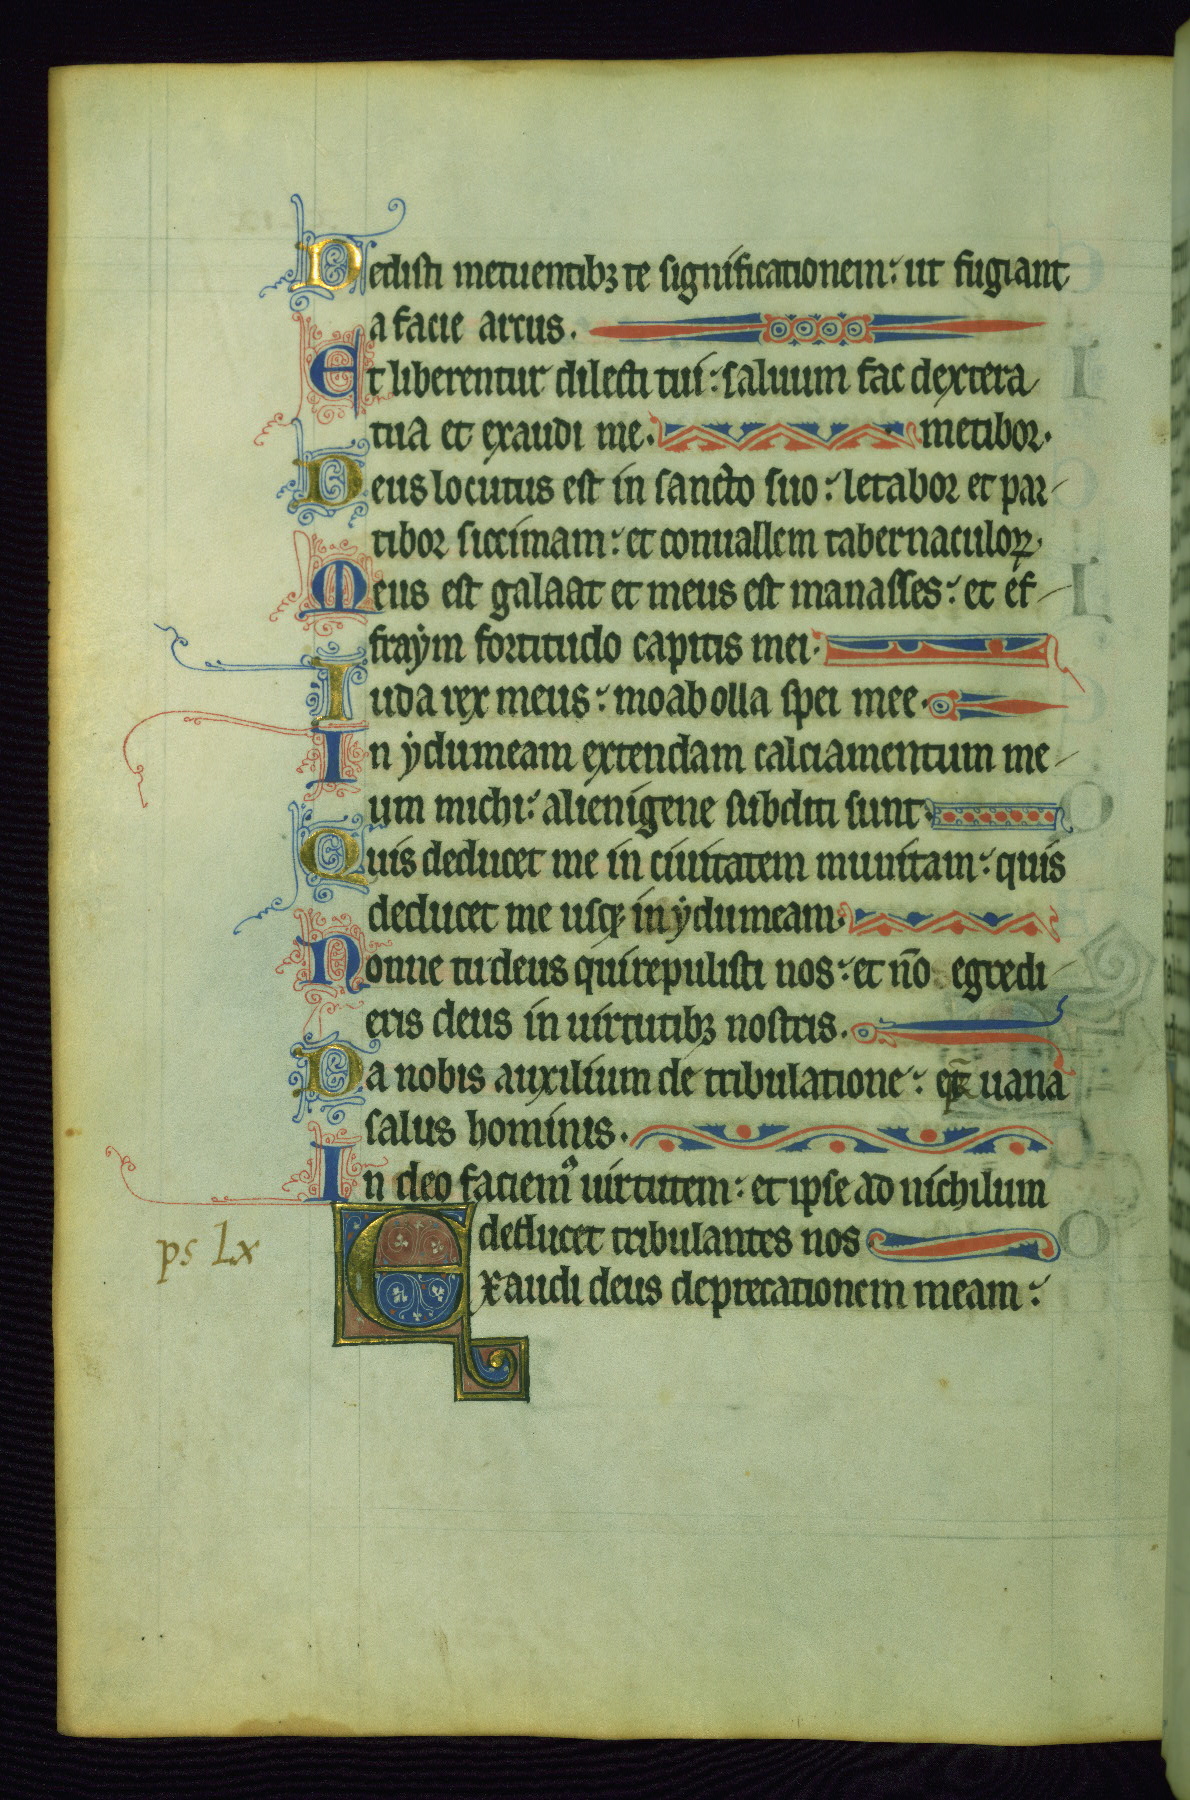 Dedisti metuentibꝫ te significationem: ut fugiant
a facie arcus.
Et liberentur dilecti tui: saluum fac dextera
tua et exaudi me. metibor.
Deus locutus est in sancto suo: letabor et par
tibor siccimam: et conuallem tabernaculoꝝ.
Meus est galaat et meus est manasses: et ef
fraẏm fortitudo capitis mei.
Iuda rex meus: moab olla spei mee.
In ẏdumeam extendam calciamentum me
um michi: alienigene subditi sunt.
Quis deducet me in ciuitatem munitam: quis
deducet me usqꝫ in ẏdumeam.
Nonne tu deus qui repulisti nos: et nō egredi
eris deus in uirtutibꝫ nostris.
Da nobis auxilium de tribulatione: eꝗ̄ uana
salus hominis.
In deo faciemꝰ uirtutem: et ipse ad nichilum
deducet tribulantes nos
Exaudi deus deprecationem meam:
ps Lx